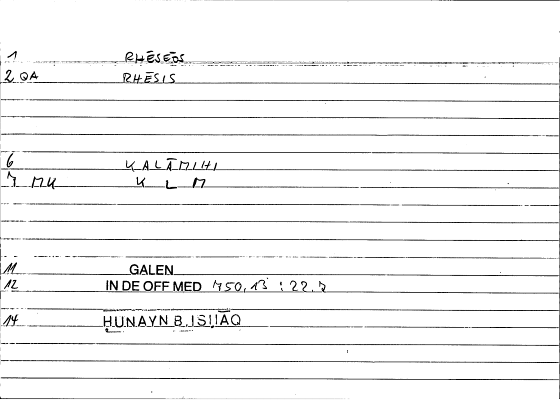 1 RHĒSEŌS
2 QA RHĒSIS
6 KALĀMIHI
7 MK K L M
11 GALEN
12 IN DE OFF MED 750,13 : 22.7
14 ḤUNAYN B. ISḤĀQ